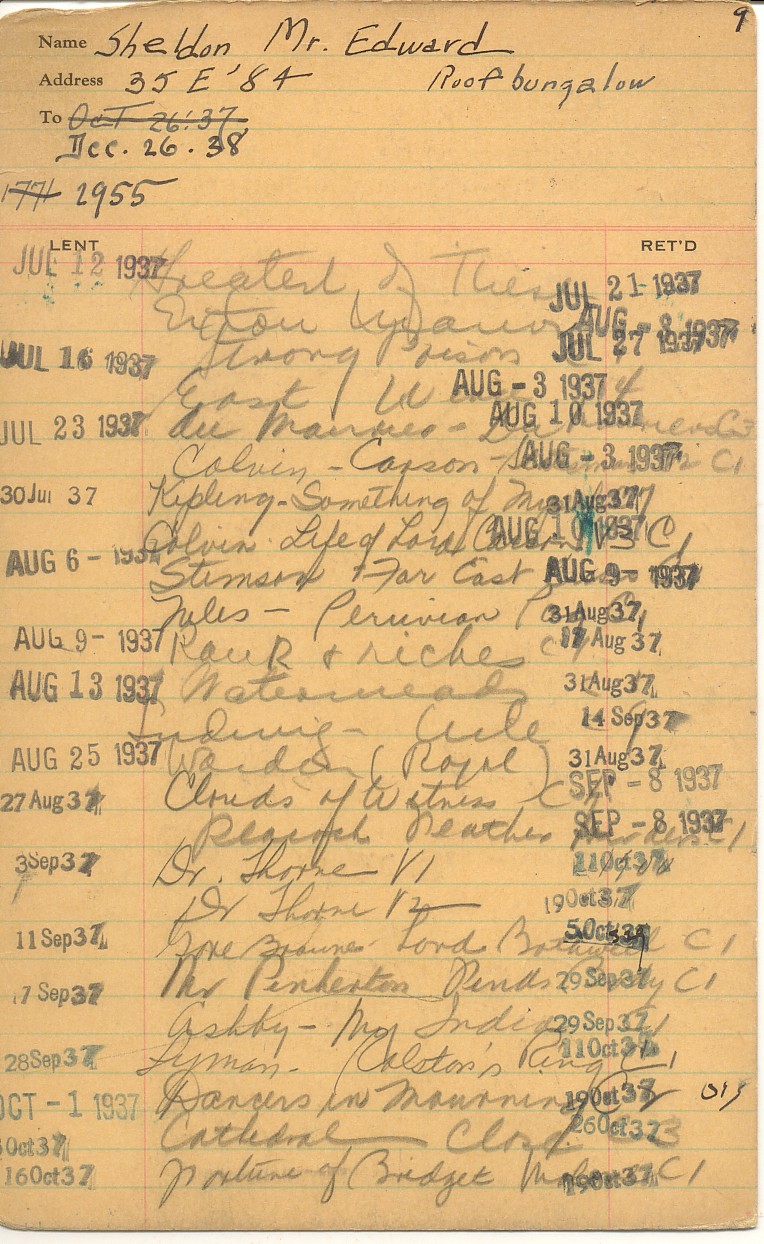 9
Name Sheldon Mr. Edward
Address 35 E '84 Roof bungalow
To Oct 26.37.
Dec. 26.38
1771 2955
LENT RET'D
JUL 12 1937 Greatest of These JUL 21 1937
Exton Manor AUG - 8 1937
JUL 16 1937 Strong Poison JUL 27 1937
East Wind AUG - 3 1937
JUL 23 1937 du Maurier - AUG 10 1937
Colvin - Carson - AUG - 3 1937 C1
30 Jul 37 Kipling - Something of My 31 Aug 37
Colvin Life of Lord Carson V3 C1 AUG 10 1937
AUG 6 - 1937 Stimson Far East AUG 9 - 1937
Niles - Peruvian 31 Aug 37
AUG 9 - 1937 Rank & Riches Aug 37
AUG 13 1937 Watermeads 31 Aug 37
Ludwig - Nile 14 Sep 37
AUG 25 1937 Warden (Royal) 31 Aug 37
27 Aug 37 Clouds of Witness SEP - 8 1937
Peacock Feather Murders C1 SEP - 8 1937
3 Sep 37 Dr. Thorne V1 11 Oct 37
Dr Thorne V2 19 Oct 37
11 Sep 37 Gore Browne Lord Bothwell C1 5 Oct 37
17 Sep 37 Mr Pinkerton Finds C1 29 Sep 37
Ashby - My India C1 29 Sep 37
28 Sep 37 Lyman. Ring C1 11 Oct 37
OCT - 1 1937 Dancers in Mourning 19 Oct 37
Oct 37 Cathedral Close C3 26 Oct 37
16 Oct 37 Fortune of Bridget C1 19 Oct 37